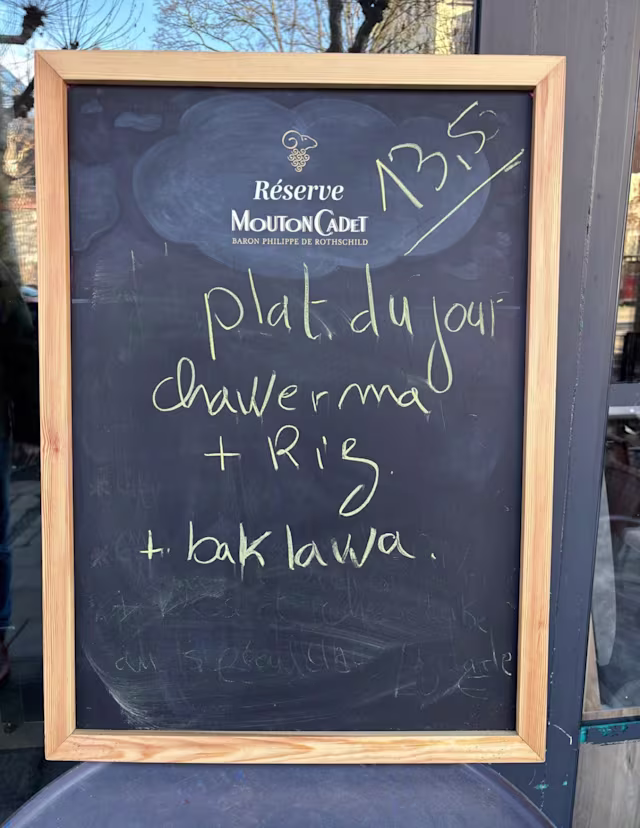 13,5
Réserve
MOUTON CADET
BARON PHILIPPE DE ROTHSCHILD
plat du jour
chawerma
+ Riz.
+ baklawa.